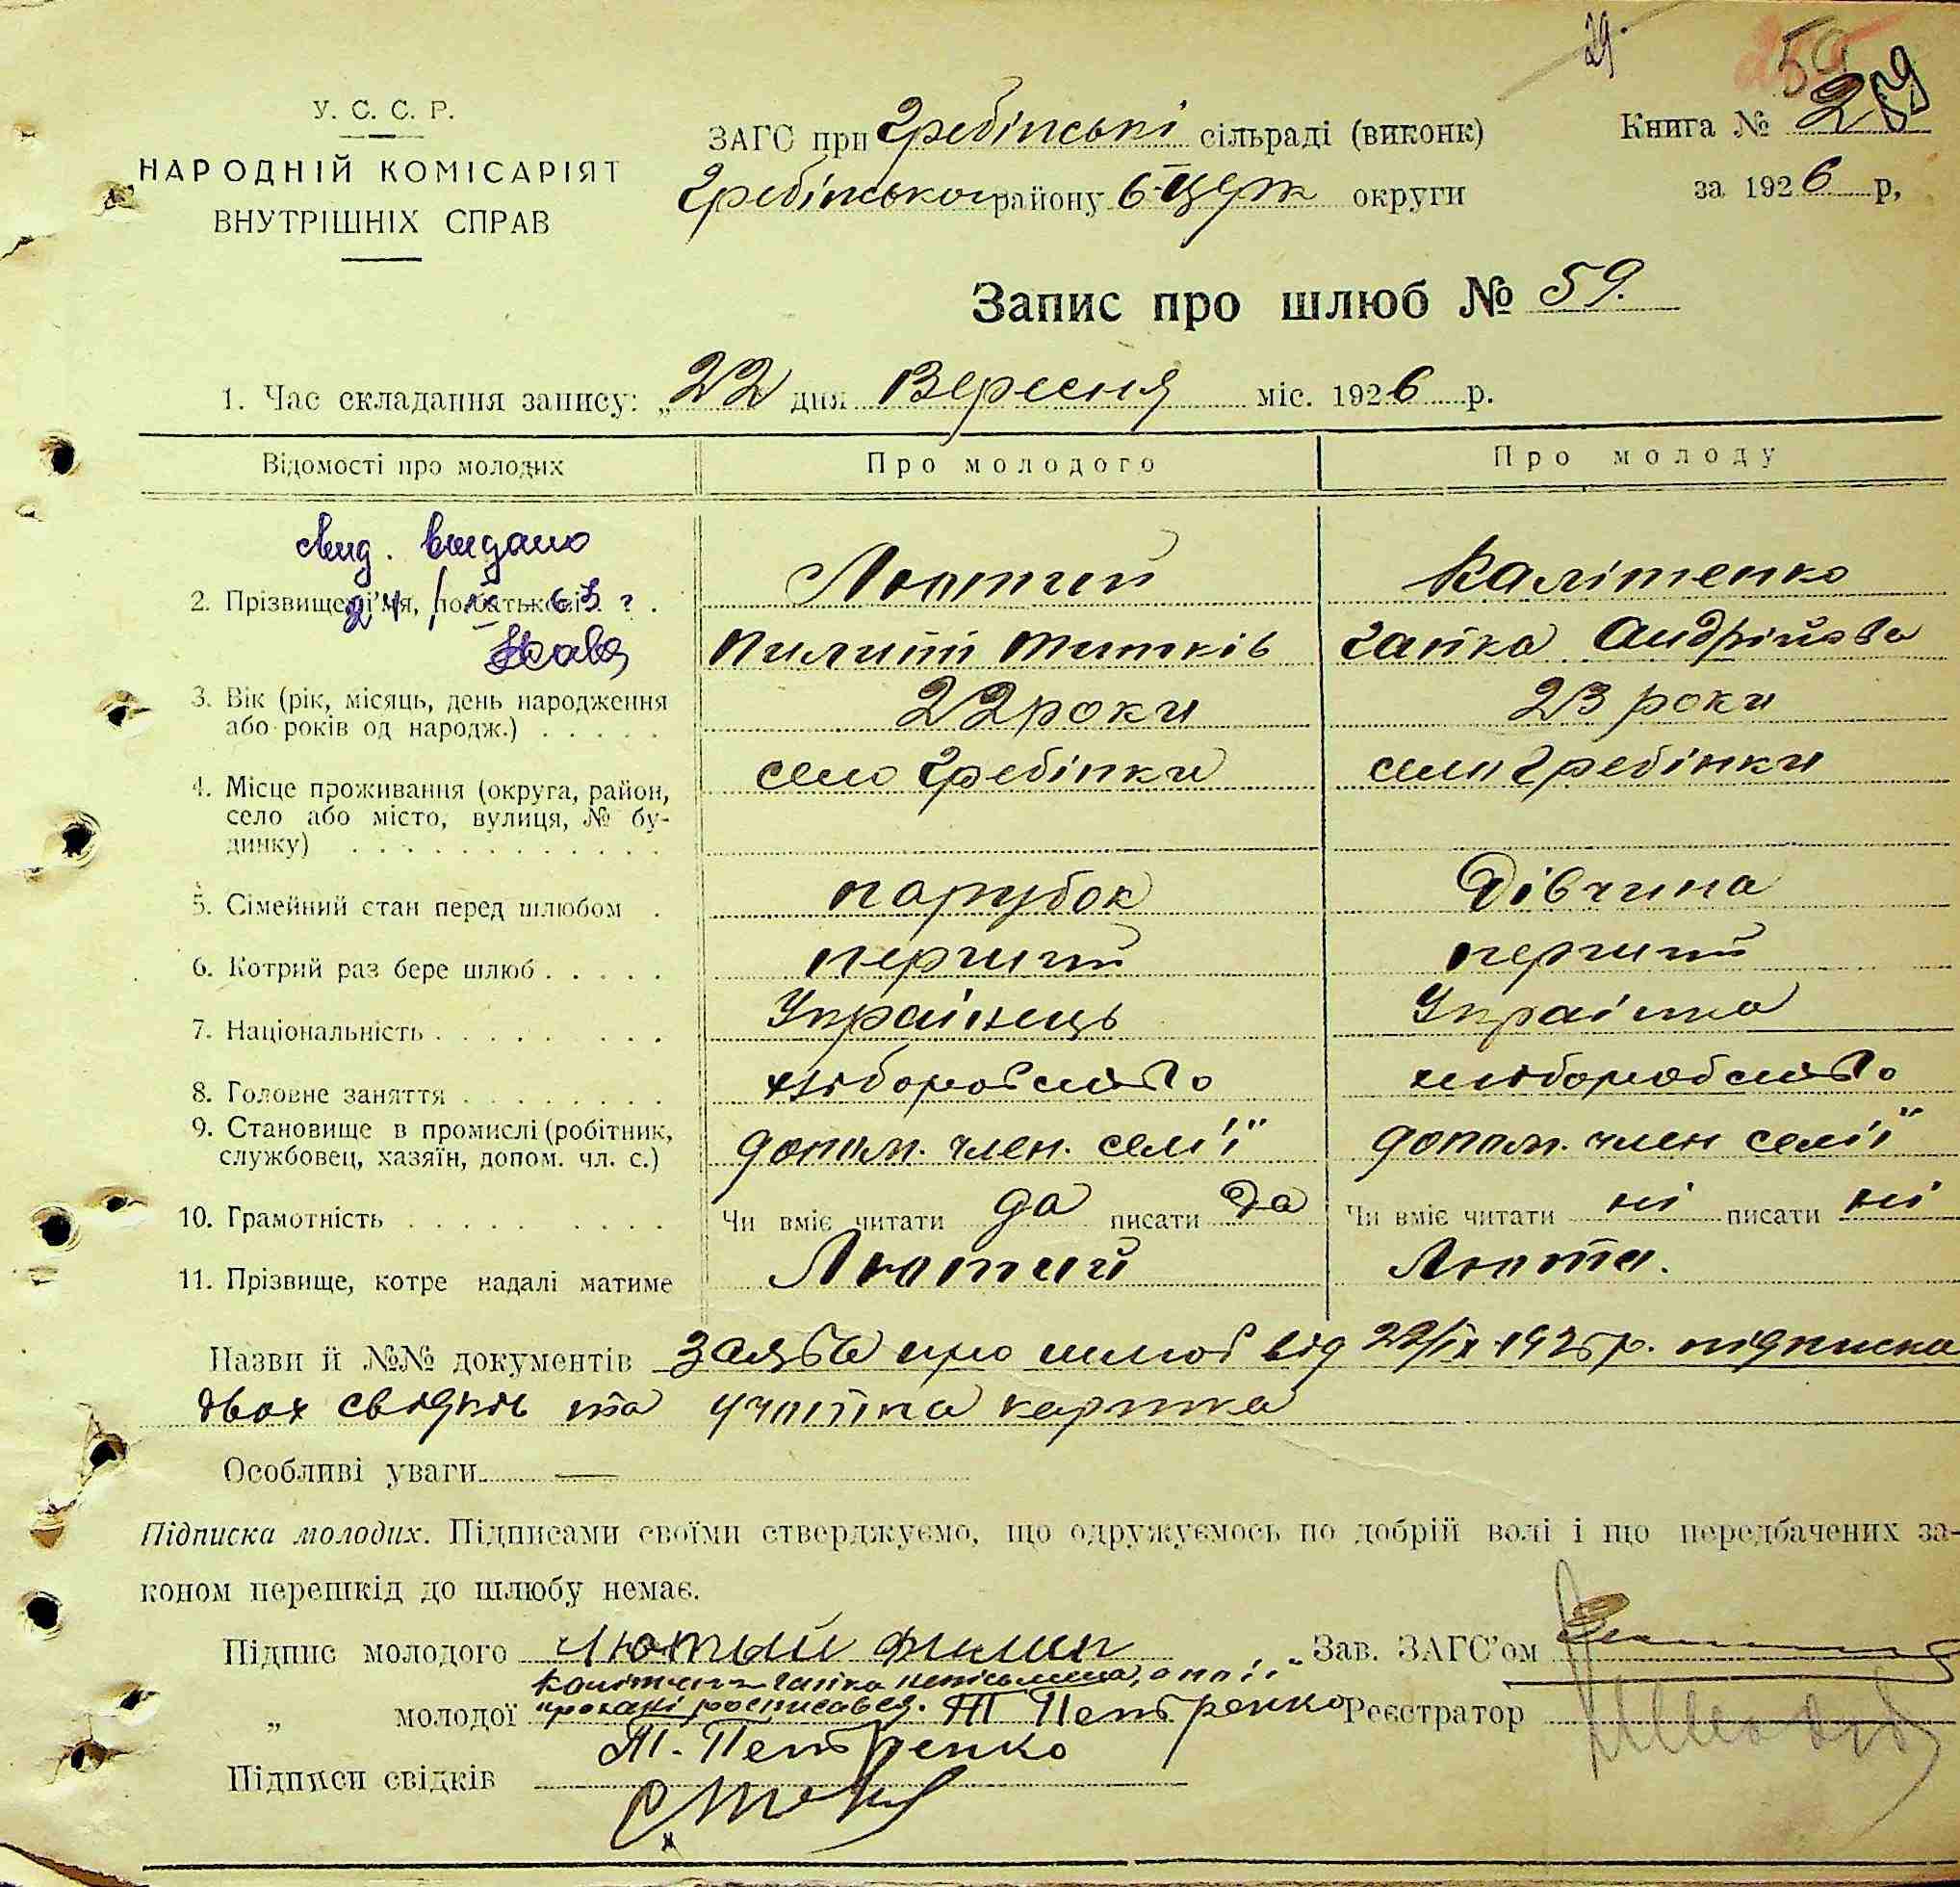 29.
59
У. С. С. Р.
НАРОДНІЙ КОМІСАРІЯТ
ВНУТРІШНІХ СПРАВ
ЗАГС при Гребінські сільраді (виконк)
Гребінського району Б-Церк округи
Книга № 2
за 1926 р,
Запис про шлюб № 59.
1. Час складання запису: „22 дня Вересня міс. 1926 р.
Відомості про молодих
Про молодого
Про молоду
свид. видано
2. Прізвище, ім'я, по батькові
Лютий
Калітенко
Пилип Титків
Гапка Андрійова
3. Вік (рік, місяць, день народження
або років од народж.)
22 роки
23 роки
4. Місце проживання (округа, район,
село або місто, вулиця, № бу-
динку)
село Гребінки
село Гребінки
5. Сімейний стан перед шлюбом
парубок
Дівчина
6. Котрий раз бере шлюб
перший
перший
7. Національність
Українець
Українка
8. Головне заняття
хліборобство
хліборобство
9. Становище в промислі (робітник,
службовец, хазяїн, допом. чл. с.)
допом. член. семії
допом. член семії
10. Грамотність
Чи вміє читати да писати да
Чи вміє читати ні писати ні
11. Прізвище, котре надалі матиме
Лютий
Люта.
Назви й №№ документів заява про шлюб від 22/ІХ 1926 р. підписка
двох свідків та учотна картка
Особливі уваги —
Підписка молодих. Підписами своїми стверджуємо, що одружуємось по добрій волі і що передбачених за-
коном перешкід до шлюбу немає.
Підпис молодого Лютый Филип
Зав. ЗАГС'ом
Калітенко Гапка неписьмена, а по її
„ молодої проханні росписався. Т Петренко
Реєстратор
Т. Петренко
Підписи свідків